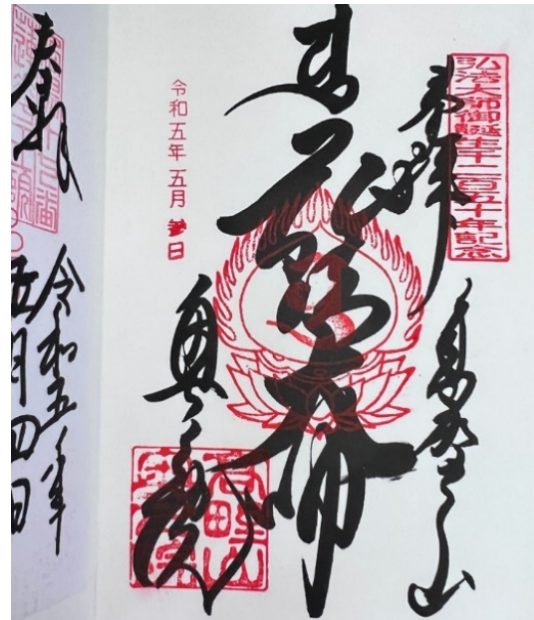 弘法大師御誕生千二百五十年記念
奉拝
高野山
弘法大師
奥之院
令和五年五月参日
奉拝
令和五年
五月四日